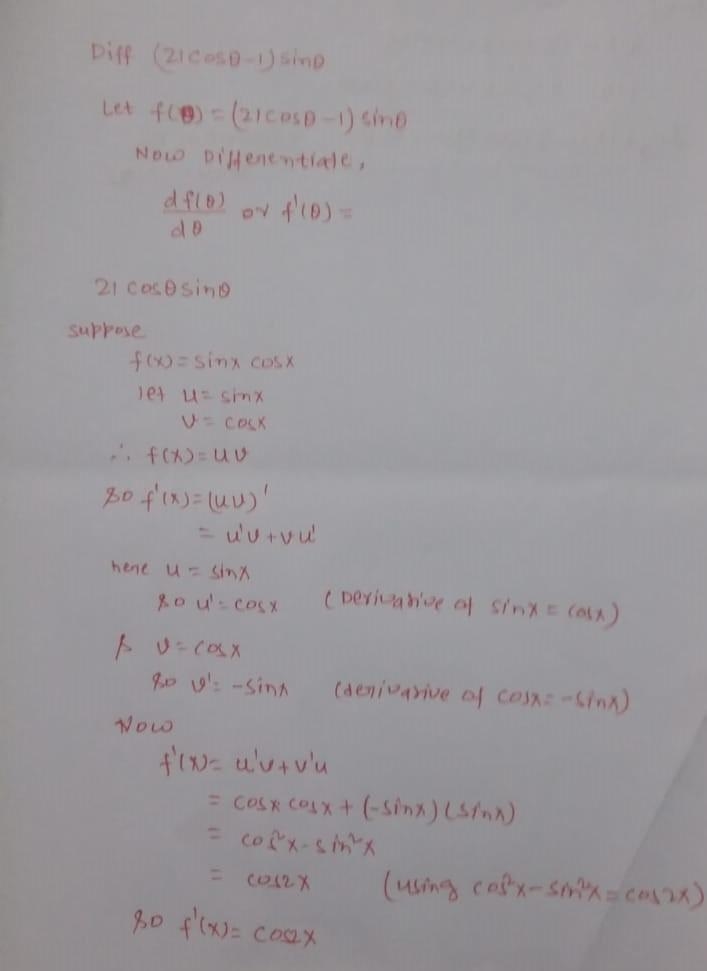 Diff (21cosθ-1)sinθ
Let f(θ)=(21cosθ-1)sinθ
Now Differentiate,
df(θ)/dθ or f'(θ)=
21 cosθ sinθ
suppose
f(x)=sinx cosx
let u=sinx
v=cosx
∴ f(x)=uv
so f'(x)=(uv)'
= u'v+vu'
here u=sinx
so u'=cosx (Derivative of sinx=cosx)
& v=cosx
so v'=-sinx (derivative of cosx=-sinx)
Now
f'(x)=u'v+v'u
= cosx cosx+(-sinx)(sinx)
= cos²x-sin²x
= cos2x (using cos²x-sin²x=cos2x)
so f'(x)=cos2x